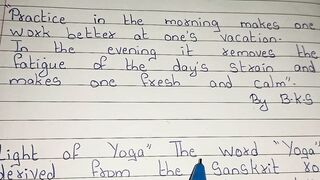 "Practice in the morning makes one
work better at one's vacation.
In the evening it removes the
fatigue of the day's strain and
makes one fresh and calm".
By B.K.S
Light of Yoga" The word "Yoga"
derived from the Sanskrit